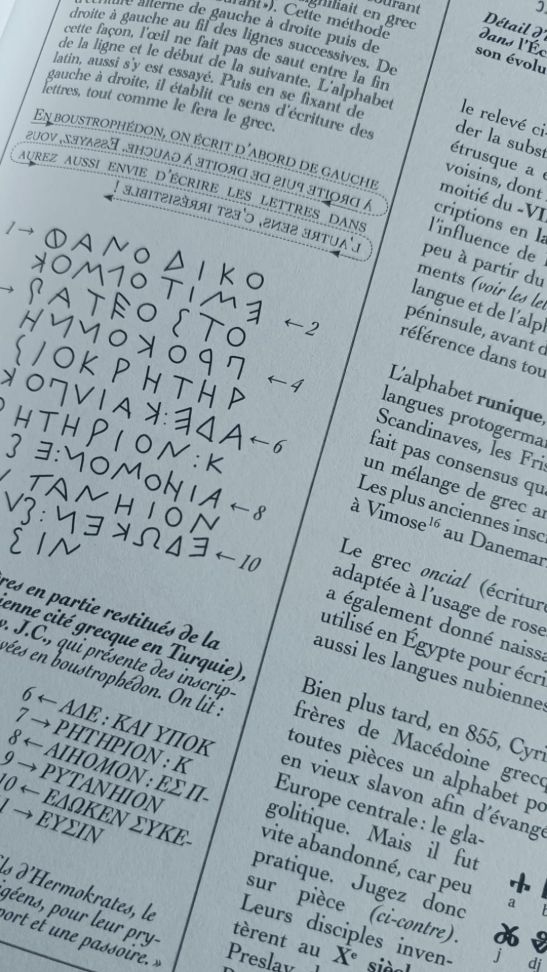 signifiait en grec
courant
»). Cette méthode
alterne de gauche à droite puis de
droite à gauche au fil des lignes successives. De
cette façon, l'œil ne fait pas de saut entre la fin
de la ligne et le début de la suivante. L'alphabet
latin, aussi s'y est essayé. Puis en se fixant de
gauche à droite, il établit ce sens d'écriture des
lettres, tout comme le fera le grec.
EN BOUSTROPHÉDON, ON ÉCRIT D'ABORD DE GAUCHE
À DROITE PUIS DE DROITE À GAUCHE. ESSAYEZ, VOUS
AUREZ AUSSI ENVIE D'ÉCRIRE LES LETTRES DANS
L'AUTRE SENS, C'EST IRRÉSISTIBLE !
1 → ΦΑΝΟΔΙΚΟ
ΕΜΙΤΟΜΡΟΚ ← 2
→ ΡΑΤΕΟΣΤΟ
ΠΡΟΚΟΝΝΗ ← 4
ΣΙΟΚΡΗΤΗΡ
ΑΔΕ:ΚΑΙΥΠΟΚ ← 6
ΡΗΤΗΡΙΟΝ:Κ
ΑΙΗΘΜΟΝ:ΕΣ ← 8
ΥΤΑΝΗΙΟΝ
ΕΔΩΚΕΝ:ΣΥ ← 10
ΣΙΝ
en partie restitués de la
cité grecque en Turquie),
J.C., qui présente des inscrip-
en boustrophédon. On lit :
6 ← ΑΔΕ : ΚΑΙ ΥΠΟΚ
7 → ΡΗΤΗΡΙΟΝ : Κ
8 ← ΑΙΗΟΜΟΝ : ΕΣ Π-
9 → ΡΥΤΑΝΗΙΟΝ
10 ← ΕΔΩΚΕΝ ΣΥΚΕ-
→ ΕΥΣΙΝ
d'Hermokrates, le
pour leur pry-
et une passoire. »
Détail d'
dans l'Éc
son évolu
le relevé ci-
der la subst
étrusque a é
voisins, dont
moitié du -VI
criptions en la
l'influence de
peu à partir du
ments (voir les let
langue et de l'alph
péninsule, avant d
référence dans tou
L'alphabet runique,
langues protogerma
Scandinaves, les Fris
fait pas consensus qua
un mélange de grec ar
Les plus anciennes insci
à Vimose¹⁶ au Danemar
Le grec oncial (écriture
adaptée à l'usage de rose
a également donné naissa
utilisé en Égypte pour écri
aussi les langues nubiennes
Bien plus tard, en 855, Cyri
frères de Macédoine grecq
toutes pièces un alphabet po
en vieux slavon afin d'évangé
Europe centrale : le gla-
golitique. Mais il fut
vite abandonné, car peu
pratique. Jugez donc
sur pièce (ci-contre).
Leurs disciples inven-
tèrent au Xᵉ siècl
Preslav
a
j
dj